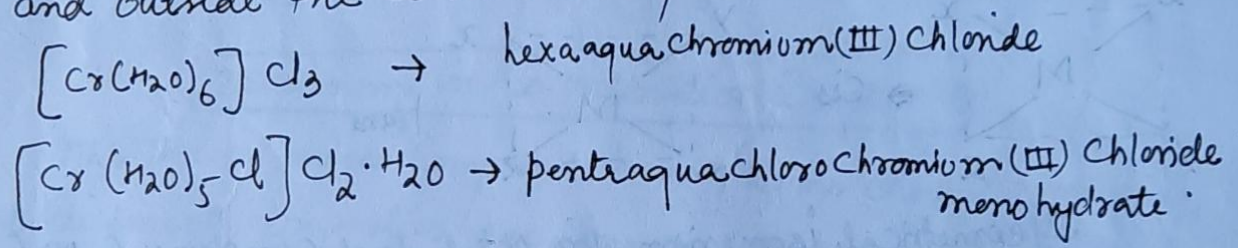 and outside the
[Cr(H2O)6] Cl3 → hexaaquachromium(III) Chloride
[Cr (H2O)5 Cl] Cl2 · H2O → pentraquachlorochromium(III) Chloride
monohydrate.